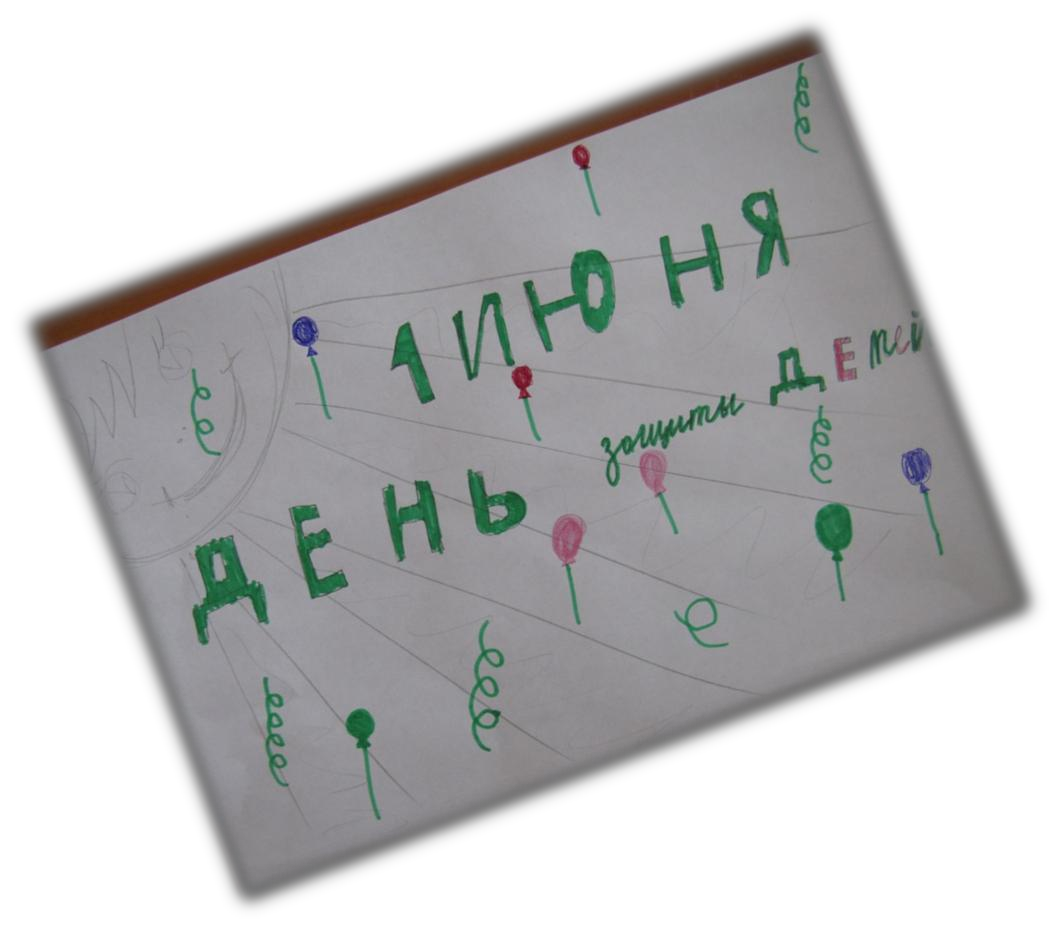 1 ИЮНЯ
ДЕНЬ защиты ДЕтей